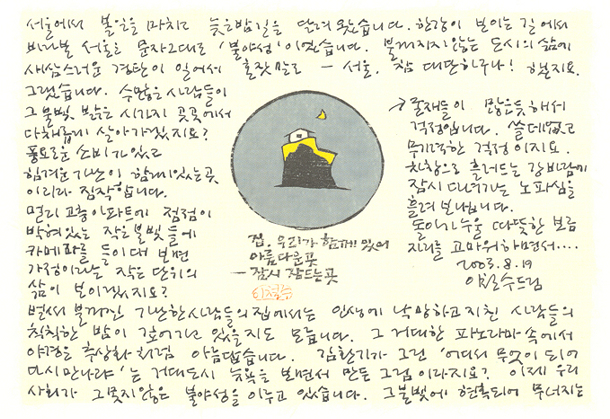 서울에서 볼일을 마치고 늦은밤길을 달려 왔습니다. 한강이 보이는 길에서
바라본 서울은 문자그대로 '불야성'이었습니다. 불꺼지지 않는 도시의 삶에
새삼스러운 경탄이 일어서 혼잣말로 — 서울. 참 대단하구나! 했지요.
그렇습니다. 수많은 사람들이
그 불빛 밝은 시가지 곳곳에서
다채롭게 살아가겠지요?
풍요로운 소비가 있고
힘겨운 가난이 함께 있는 곳
이리라 짐작합니다.
멀리 고층아파트에 점점이
박혀있는 작은 불빛들에
카메라를 들이대 보면
가정이라는 작은 단위의
삶이 보이겠지요?
벌써 불꺼진 가난한 사람들의 집에서는 인생에 낙망하고 지친 사람들의
칙칙한 밤이 깊어가고 있을지도 모릅니다. 그 거대한 파노라마 속에서
야경은 추상화처럼 아름답습니다. 김환기가 그린 '어디서 무엇이 되어
다시 만나랴'는 거대도시 뉴욕을 보면서 만든 그림이라지요? 이제 우리
사회가 그 못지않은 불야성을 이루고 있습니다. 그 불빛에 현혹되어 무너지는
→ 존재들이 많은듯 해서
걱정입니다. 쓸데없고
무기력한 걱정이지요.
차창으로 흘러드는 강바람에
잠시 다녀가는 노파심을
흘려보냅니다.
돌아가 누울 따뜻한 보금
자리를 고마워하면서....
2003. 8. 19
이철수 드림
집. 우리가 함께 있어
아름다운 곳
— 잠시 잠드는 곳